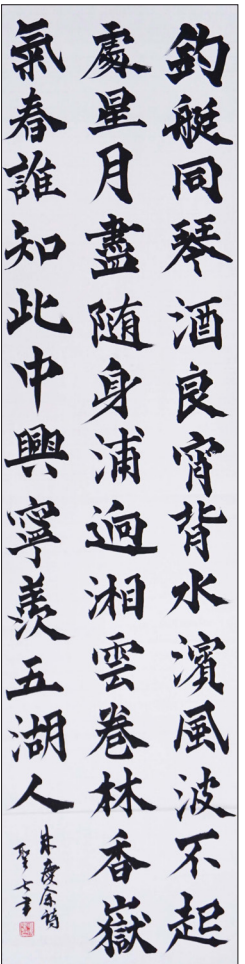 釣艇同琴酒良宵背水濱風波不起
處星月盡随身浦迥湘雲卷林香嶽
氣春誰知此中興寧羨五湖人
朱慶余詩